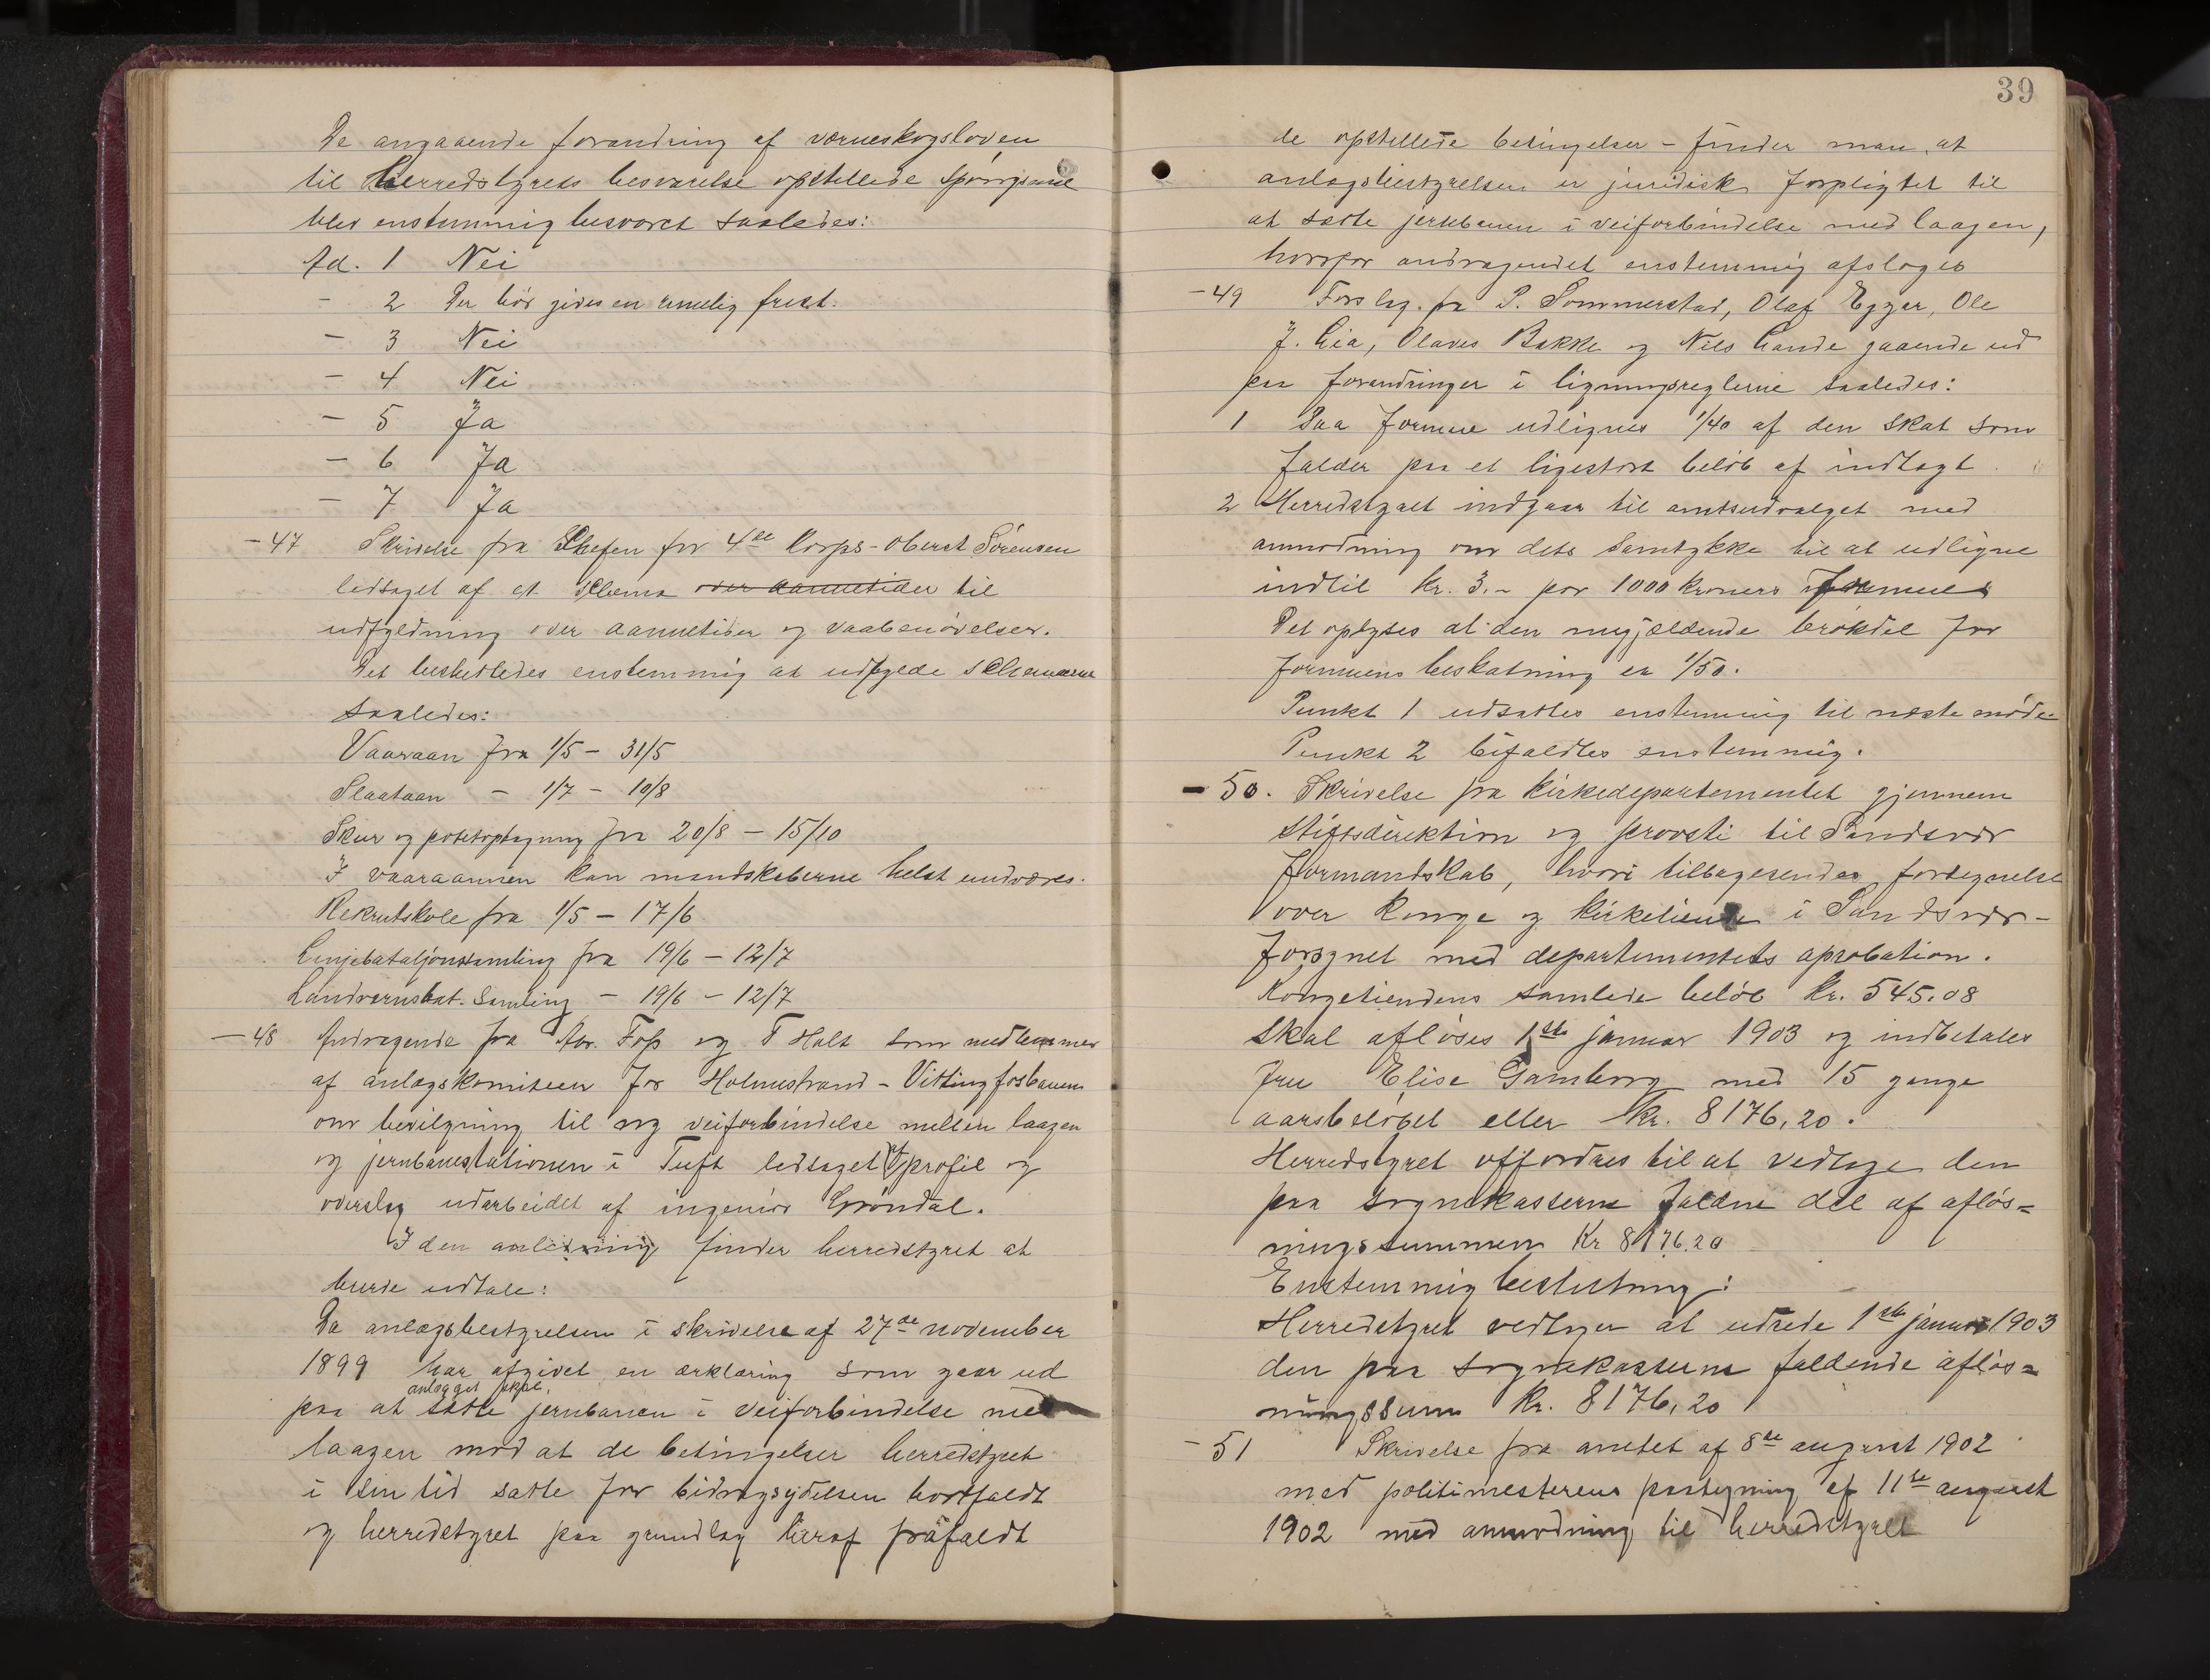 De angaaende forandring af værneskogsloven
til Herredstyrets besvarelse opstillede spørgsmaal
blev enstemmig besvaret saaledes:
Ad. 1 Nei
- 2 Der bør gives en rimelig frist.
- 3 Nei
- 4 Nei
- 5 Ja
- 6 Ja
- 7 Ja
- 47 Skrivelse fra Chefen for 4de Korps - Oberst Sørensen
ledsaget af et schema over aannetider til
udfyldning over aannetider og vaabenøvelser.
Det besluttedes enstemmig at udfylde schemaerne
saaledes:
Vaaraan fra 1/5 - 31/5
Slaataan - 1/7 - 10/8
Skur og potetoptagning fra 20/8 - 15/10
I vaaraannen kan mandskaberne helst undværes.
Rekrutskole fra 1/5 - 17/6
Linjebataljonssamling fra 19/6 - 12/7
Landvernsbat. Samling - 19/6 - 12/7
- 48 Andragende fra Abr. Foss og T Holt som medlemmer
af anlægskomiteen for Holmestrand - Vittingfosbanen
om bevilgning til ny veiforbindelse mellem laagen
og jernbanestationen i Tuft ledsaget af profil og
overslag udarbeidet af ingeniør Grøndal.
I den anledning finder herredstyret at
burde udtale:
Da anlægsbestyrelsen i skrivelse af 27de november
1899 har afgivet en erklæring som gaar ud
anlægget skal
paa at sætte jernbanen i veiforbindelse med
laagen mod at de betingelser herredstyret
i sin tid satte for bidragsydelsen bortfaldt
og herredstyret paa grundlag heraf frafaldt
39
de opstillede betingelser - finder man, at
anlægsbestyrelsen er juridisk forpligtet til
at sætte jernbanen i veiforbindelse med laagen,
hvorfor andragendet enstemmig afsloges
- 49 Forslag fra P. Sommerstad, Olaf Eggar, Ole
J. Lia, Olaves Bakke og Nils Lande gaaende ud
paa forandringer i ligningsreglerne saaledes:
1 Paa formue udlignes 1/40 af den skat som
falder paa et ligestort beløb af indtægt.
2 Herredstyret indgaar til amtsudvalget med
anmodning om dets samtykke til at udligne
indtil kr. 3.- por 1000 kroners formue
Det oplystes at den nugjældende brøkdel for
formuens beskatning er 1/50.
Punkt 1 udsattes enstemmig til næste møde.
Punkt 2 bifaldtes enstemmig.
- 50. Skrivelse fra kirkedepartementet gjennem
stiftsdirektion og provsti til Sandsvær
formandskab, hvori tilbagesendes fortegnelse
over konge og kirketiende i Sandsvær -
forsynet med departementets aprobation.
Kongetiendens samlede beløb kr. 545.08
skal afløses 1ste januar 1903 og indbetales
fru Elise Gamborg med 15 gange
aarsbeløbet eller kr. 8176,20.
Herredstyret opfordres til at vedtage den
paa sognekasserne faldne del af afløs=
ningssummen Kr 8176.20
Enstemmig beslutning:
Herredstyret vedtager at udrede 1ste januar 1903
den paa sognekasserne faldende afløs=
ningssum kr. 8176,20
- 51 Skrivelse fra amtet af 8de august 1902
med politimesterens paategning af 11te august
1902 med anmodning til herredstyret